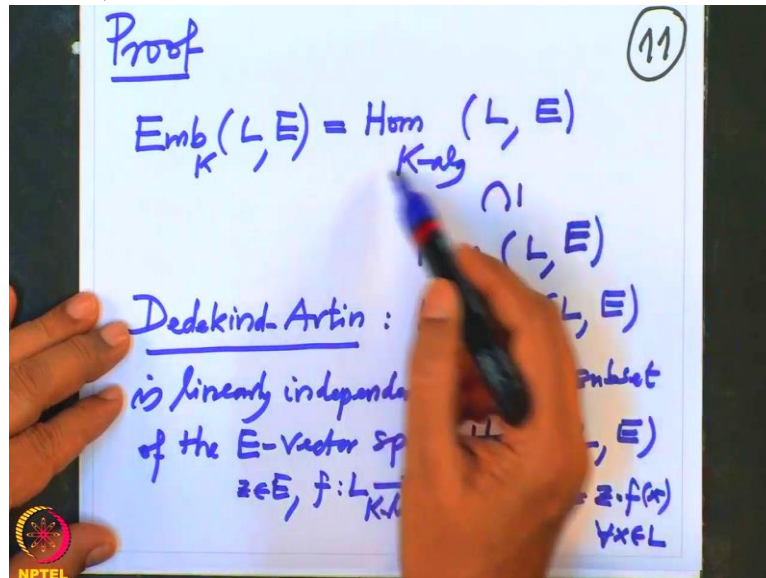 Proof
11
Emb_K (L, E) = Hom_{K-alg} (L, E)
∩|
(L, E)
Dedekind-Artin : (L, E)
is linearly subset
of the E-Vector E)
z∈E, f : L = z·f(x)
∀x∈L
NPTEL